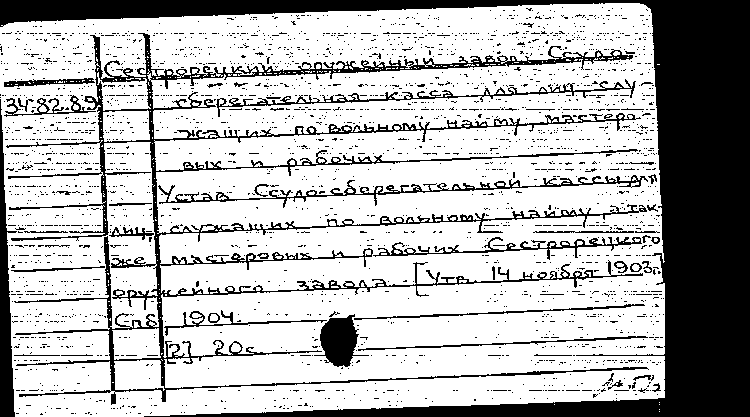 Сестрорецкий оружейный завод. Ссудо-
34.82.89 сберегательная касса для лиц, слу-
жащих по вольному найму, мастеро-
вых и рабочих.
Устав Ссудо-сберегательной кассы для
лиц, служащих по вольному найму, а так-
же мастеровых и рабочих Сестрорецкого
оружейного завода. [Утв. 14 ноября 1903г.]
Спб, 1904.
[2], 20с.